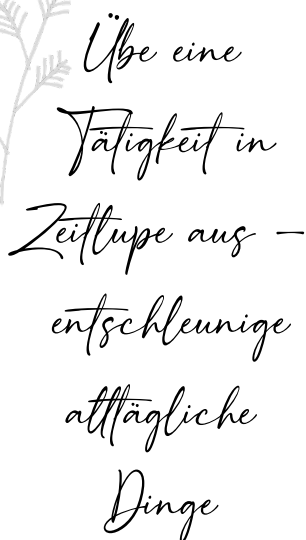 Übe eine
Tätigkeit in
Zeitlupe aus –
entschleunige
alltägliche
Dinge